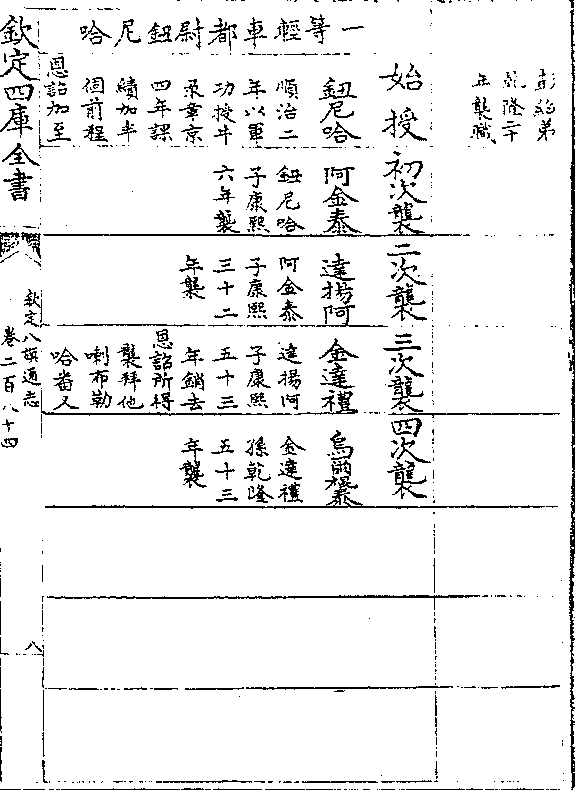 弟
乾隆二十
襲職
一等輕車都尉鈕尼哈
始授
鈕尼哈
順治二
年以軍
功授牛
录章京
四年課
績加半
個前程
恩詔加至
初次襲
阿金泰
鈕尼哈
子康熙
六年襲
二次襲
達揚阿
阿金泰
子康熙
三十二
年襲
三次襲
金達禮
達揚阿
子康熙
五十三
年銷去
恩詔所得
襲拜他
喇布勒
哈番又
四次襲
烏
金達禮
孫乾隆
五十三
年襲
欽定四庫全書
欽定八旗通志
卷二百八十四
八